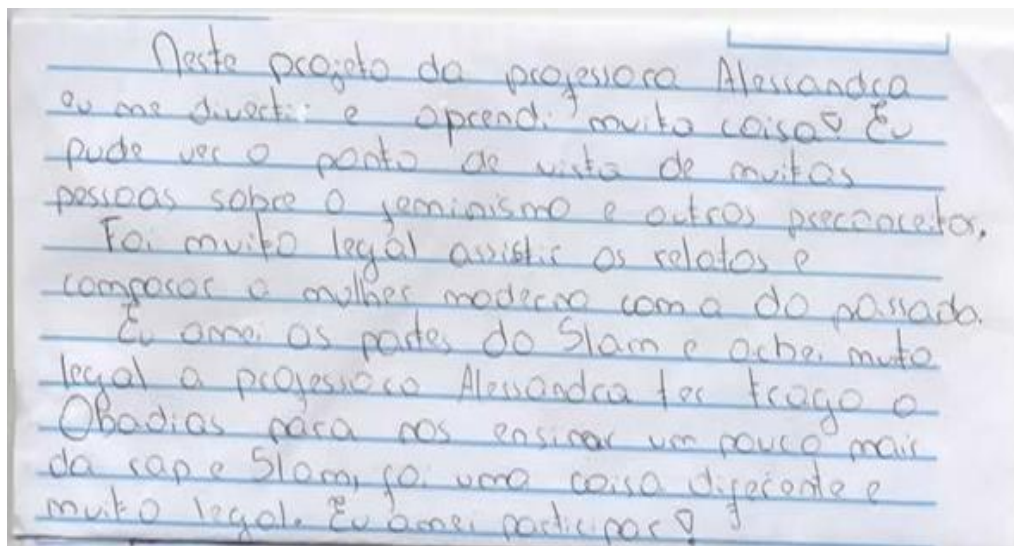 Neste projeto da professora Alessandra
eu me diverti e aprendi muita coisa! Eu
pude ver o ponto de vista de muitas
pessoas sobre o feminismo e outros preconceitos.
Foi muito legal assistir os relatos e
comparar a mulher moderna com a do passado.
Eu amei as partes do Slam e achei muto
legal a professora Alessandra ter trago o
Obadias para nos ensinar um pouco mais
da rap e Slam, foi uma coisa diferente e
muito legal. Eu amei participar!